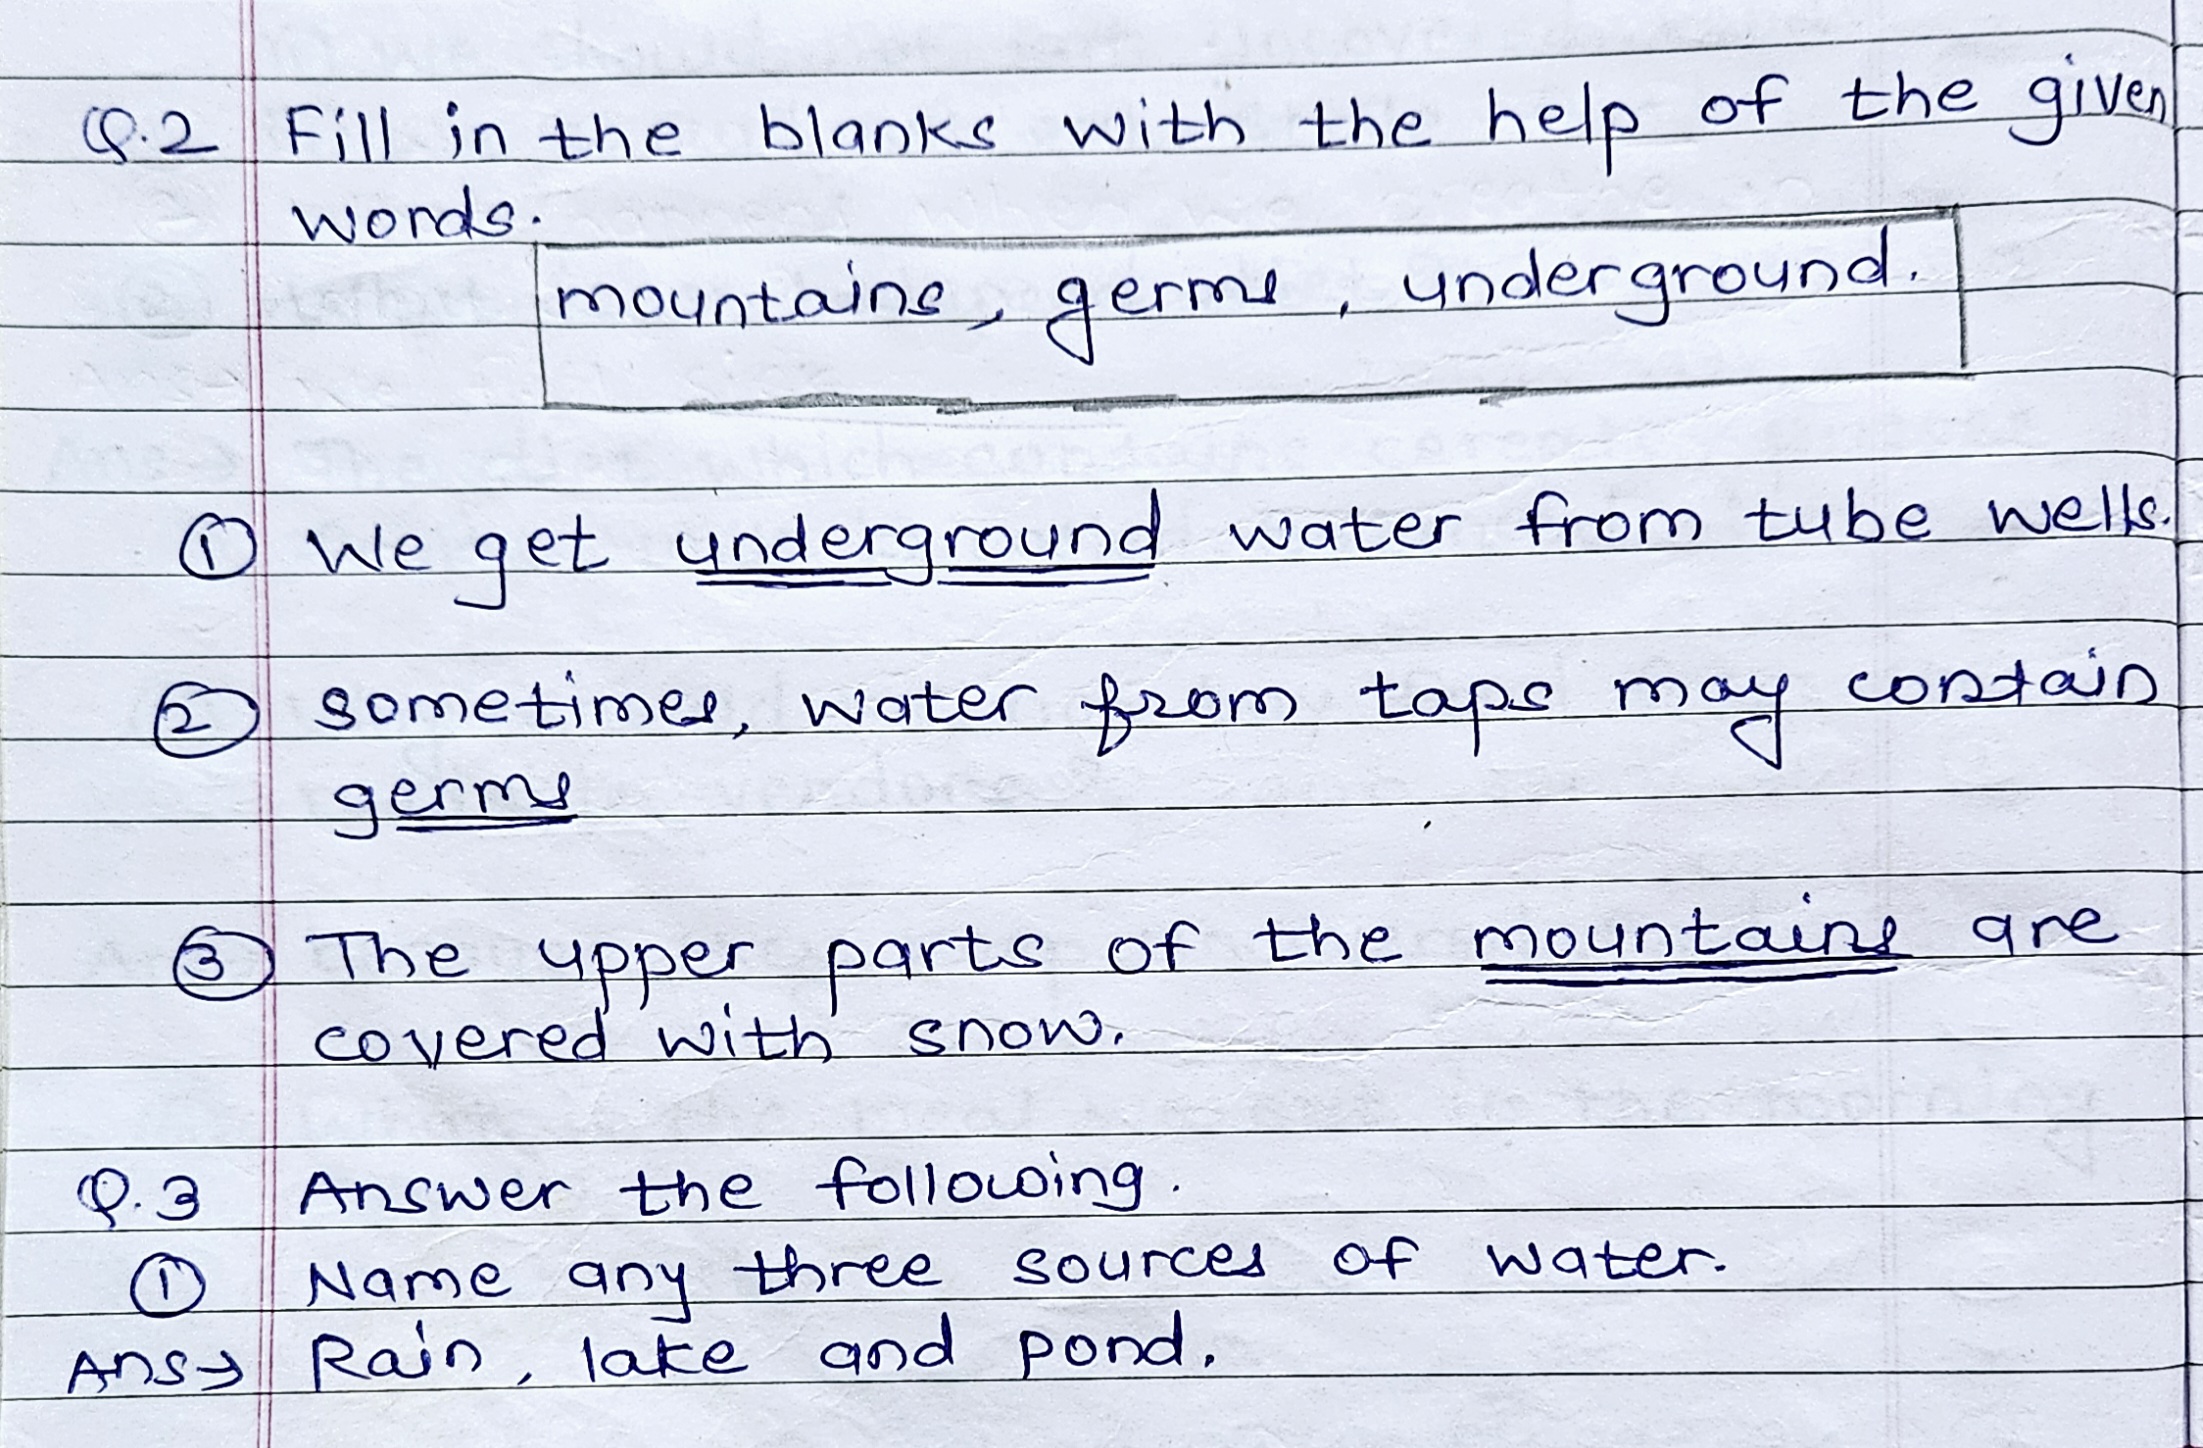 Q.2 Fill in the blanks with the help of the given
words.
mountains, germs, underground.
① We get underground water from tube wells.
② sometimes, water from taps may contain
germs
③ The upper parts of the mountains are
covered with snow.
Q.3 Answer the following.
① Name any three sources of water.
Ans→ Rain, lake and pond.